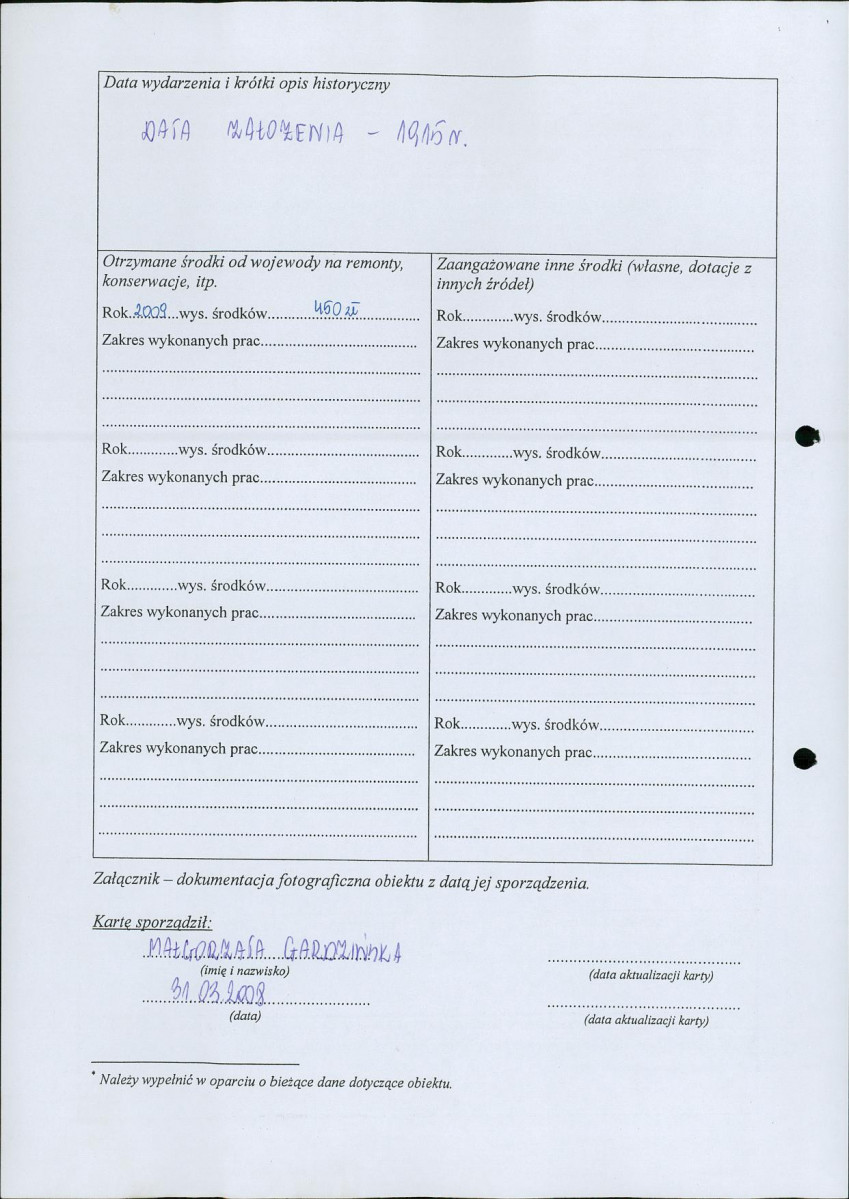 Data wydarzenia i krótki opis historyczny
DATA ZAŁOZENIA – 1915 r.
Otrzymane środki od wojewody na remonty,
konserwacje, itp.
Rok.2009...wys. środków..........450 zł..............
Zakres wykonanych prac......................................
................................................................................
................................................................................
................................................................................
Rok............wys. środków....................................
Zakres wykonanych prac.....................................
................................................................................
................................................................................
................................................................................
Rok............wys. środków....................................
Zakres wykonanych prac.....................................
................................................................................
................................................................................
................................................................................
Rok............wys. środków....................................
Zakres wykonanych prac.....................................
................................................................................
................................................................................
................................................................................
Zaangażowane inne środki (własne, dotacje z
innych źródeł)
Rok............wys. środków.....................................
Zakres wykonanych prac......................................
................................................................................
................................................................................
................................................................................
Rok............wys. środków.....................................
Zakres wykonanych prac......................................
................................................................................
................................................................................
................................................................................
Rok............wys. środków.....................................
Zakres wykonanych prac......................................
................................................................................
................................................................................
................................................................................
Rok............wys. środków.....................................
Zakres wykonanych prac......................................
................................................................................
................................................................................
................................................................................
Załącznik – dokumentacja fotograficzna obiektu z datą jej sporządzenia.
Kartę sporządził:
MAŁGORZATA GARDZIŃSKA
(imię i nazwisko)
31.03.2008
(data)
................................................
(data aktualizacji karty)
................................................
(data aktualizacji karty)
* Należy wypełnić w oparciu o bieżące dane dotyczące obiektu.